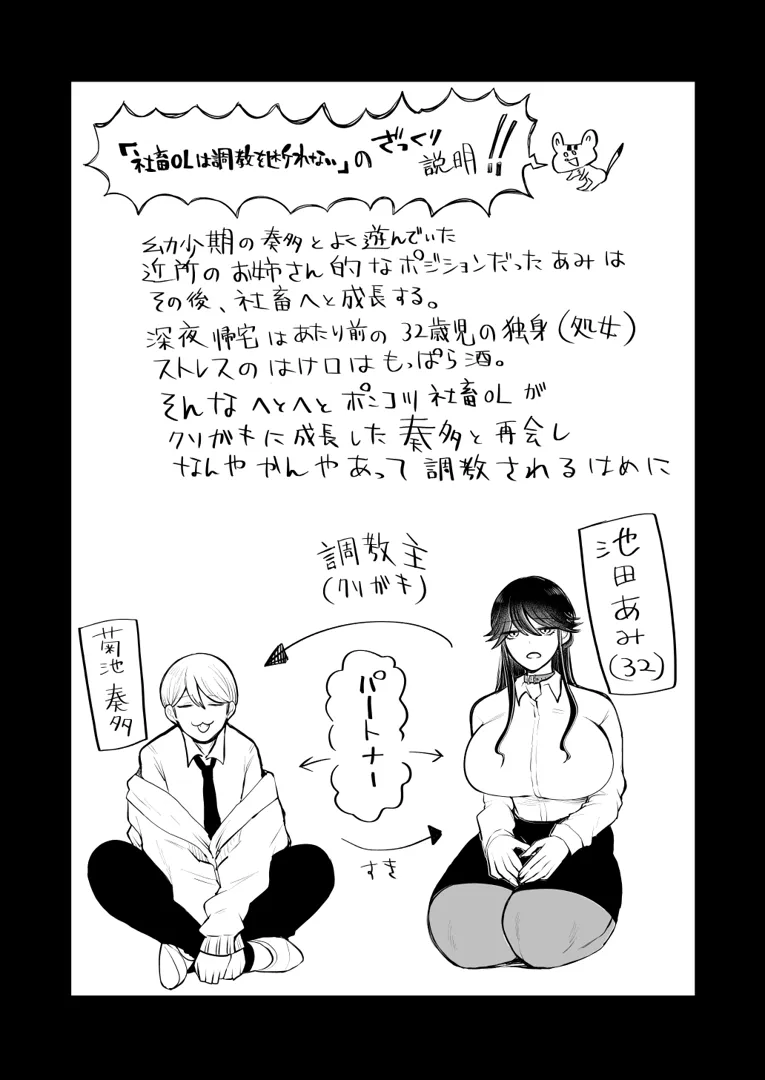 「社畜OLは調教を断れない」の
ざっくり
説明!!
幼少期の奏多とよく遊んでいた
近所のお姉さん的なポジションだったあみは
その後、社畜へと成長する。
深夜帰宅はあたり前の32歳児の独身(処女)
ストレスのはけ口はもっぱら酒。
そんなへとへとポンコツ社畜OLが
クソガキに成長した奏多と再会し
なんやかんやあって調教されるはめに
調教主
(クソガキ)
池田あみ
(32)
菊池奏多
パートナー
すき